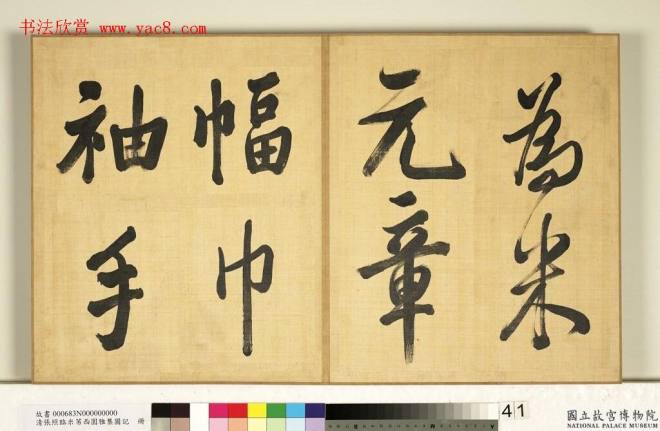 书法欣赏 www.yac8.com
為米
元章
幅巾
袖手
故書 000683N000000000
清張照臨米芾西園雅集圖記 冊
41
國立故宮博物院
NATIONAL PALACE MUSEUM